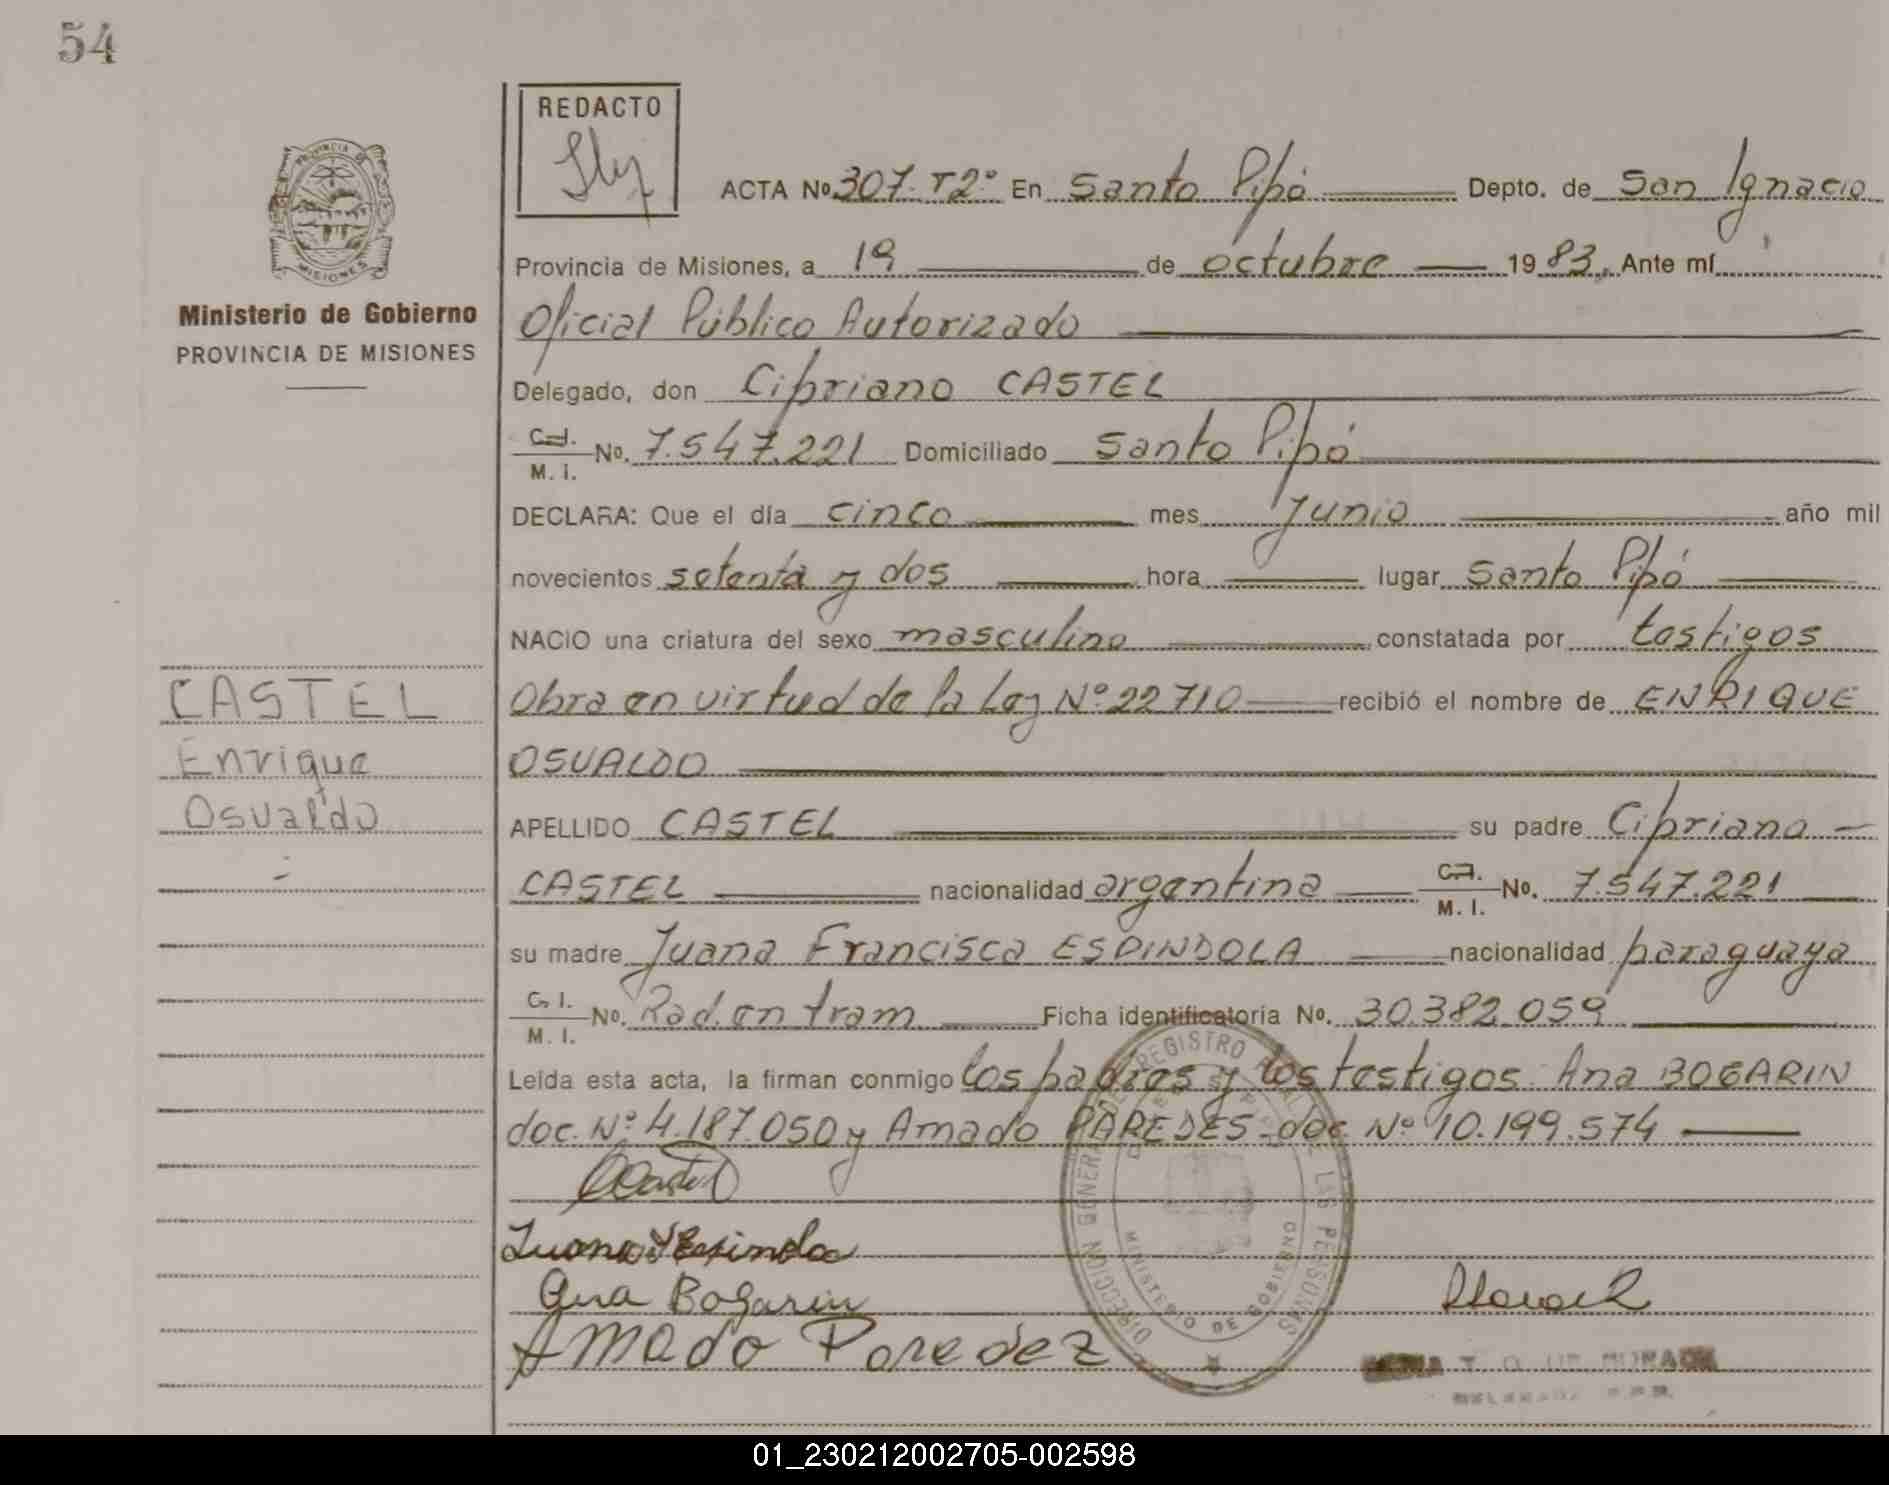 54
REDACTO
PROVINCIA DE
MISIONES
Ministerio de Gobierno
PROVINCIA DE MISIONES
ACTA No 307. T2º En Santo Pipó Depto. de San Ignacio
Provincia de Misiones, a 19 de octubre 1983, Ante mí
Oficial Público Autorizado
Delegado, don Cipriano CASTEL
C.I.
M. I. No. 7.547.221 Domiciliado Santo Pipó
DECLARA: Que el día cinco mes Junio año mil
novecientos setenta y dos hora lugar Santo Pipó
NACIO una criatura del sexo masculino constatada por testigos
Obra en virtud de la Ley Nº 22710 recibió el nombre de ENRIQUE
OSVALDO
APELLIDO CASTEL su padre Cipriano
CASTEL nacionalidad argentina C.I.
M. I. No. 7.547.221
su madre Juana Francisca ESPINDOLA nacionalidad paraguaya
C. I.
M. I. No. Rad. en tram Ficha identificatoria No. 30.382.059
Leida esta acta, la firman conmigo los padres y los testigos Ana BOGARIN
doc. Nº 4.187.050 y Amado PAREDES doc. Nº 10.199.574
CASTEL
Enrique
Osvaldo
Ana Bogarin
Amado Paredez
DIRECCION GENERAL DE REGISTRO DE LAS PERSONAS
MINISTERIO DE GOBIERNO
01_230212002705-002598